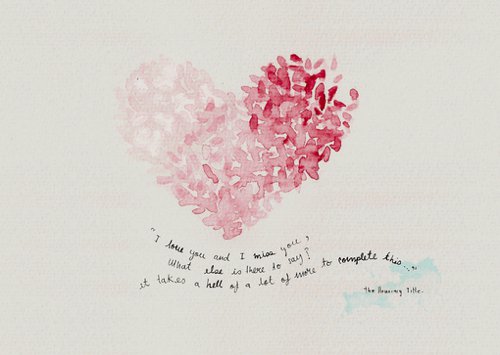 "I love you and I miss you,
What else is there to say?
it takes a hell of a lot of more to complete this..."